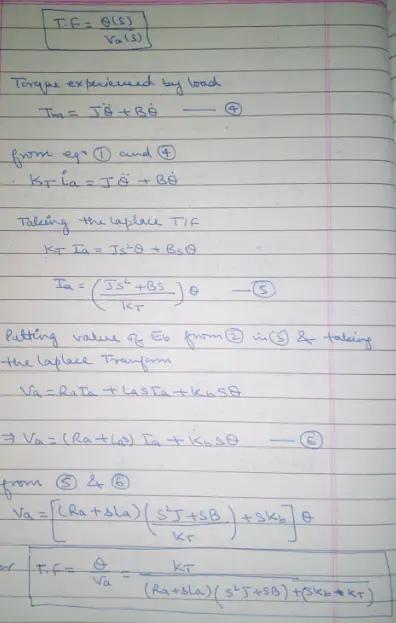 T.F = θ(s)/Va(s)
Torque experienced by load
Tm = Jθ̈ + Bθ̇ — ④
from eqⁿ ① and ④
KT ia = Jθ̈ + Bθ̇
Taking the laplace T/F
KT Ia = Js²θ + Bsθ
Ia = (Js² + Bs / KT) θ — ⑤
Putting value of Eb from ② in ③ & taking
the Laplace Tranform
Va = RaIa + LasIa + Kb sθ
⇒ Va = (Ra + Las) Ia + Kb sθ — ⑥
from ⑤ & ⑥
Va = [(Ra + sLa) (s²J + sB / KT) + sKb] θ
or T.F = θ/Va = KT / (Ra + sLa)(s²J + sB) + (sKb * KT)